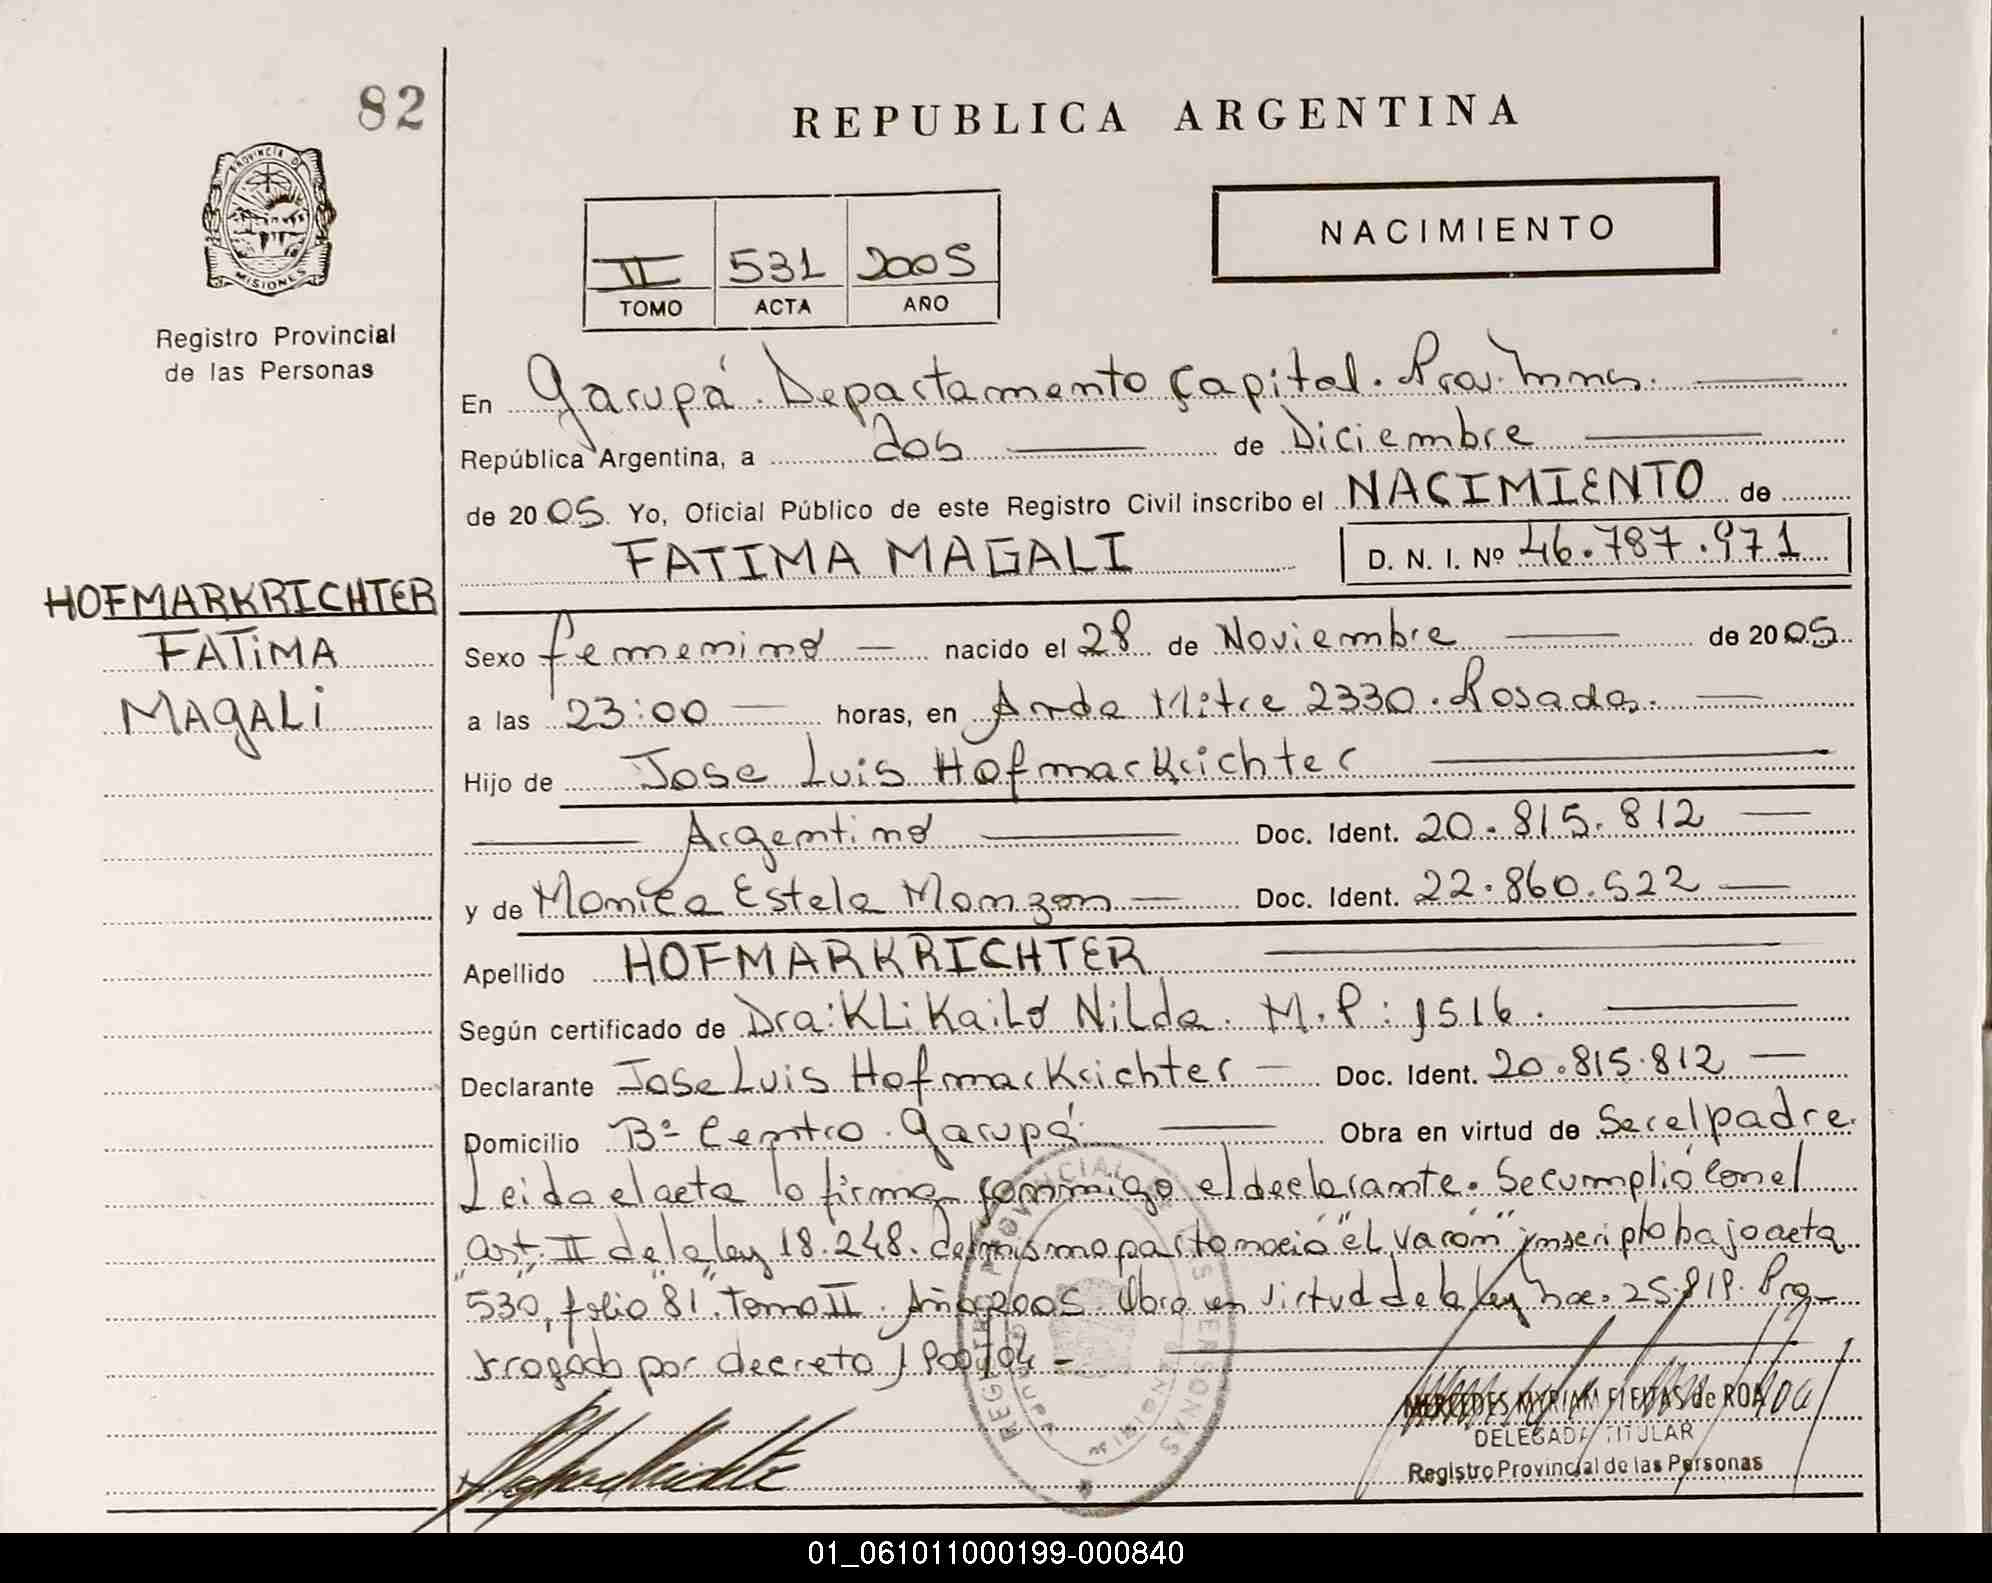 82
REPUBLICA ARGENTINA
PROVINCIA DE
MISIONES
Registro Provincial
de las Personas
NACIMIENTO
II 531 2005
TOMO ACTA AÑO
En Garupá. Departamento Capital. Prov. Mnes.
República Argentina, a dos de Diciembre
de 2005. Yo, Oficial Público de este Registro Civil inscribo el NACIMIENTO de
FATIMA MAGALI D. N. I. Nº 46.787.971
HOFMARKRICHTER
FATiMA
MAGALi
Sexo femenino nacido el 28 de Noviembre de 2005
a las 23:00 horas, en Avda Mitre 2330. Posadas.
Hijo de Jose Luis Hofmarkrichter
Argentino Doc. Ident. 20.815.812
y de Monica Estela Monzon Doc. Ident. 22.860.522
Apellido HOFMARKRICHTER
Según certificado de Dra: KLiKailo Nilda. M.P: 1516.
Declarante Jose Luis Hofmarkrichter Doc. Ident. 20.815.812
Domicilio Bº Centro. Garupá. Obra en virtud de Ser el padre.
Leida el acta la firma conmigo el declarante. Se cumplió con el
art. II de la ley 18.248. del mismo parto nació "el varón" inscripto bajo acta
"530", folio "81". Tomo II. Año 2005. Obra en virtud de la ley nac. 25.819. Pro-
rrogado por decreto
MERCEDES MYRIAM FLEITAS de ROA
DELEGADA TITULAR
Registro Provincial de las Personas
01_061011000199-000840